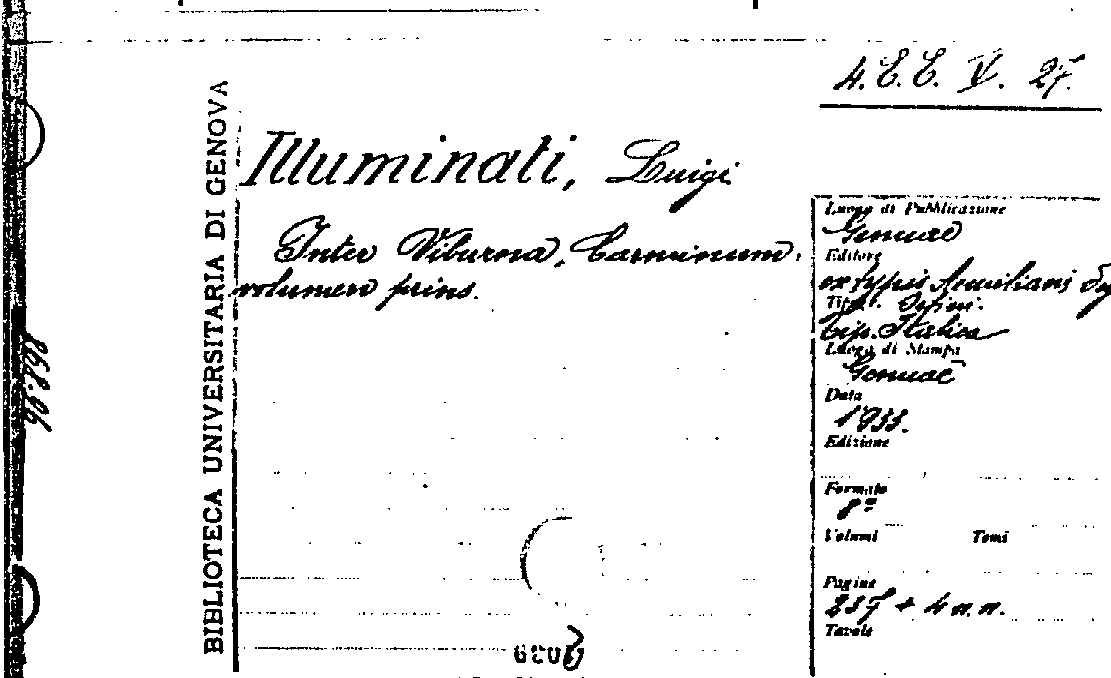 4. E. E. V. 27.
BIBLIOTECA UNIVERSITARIA DI GENOVA
Illuminati, Luigi
Inter Viburna, Carminum
volumen prius.
Luogo di Pubblicazione
Genuae
Editore
ex typis
Tip.
Tip. Italica
Luogo di Stampa
Genuae
Data
1933.
Edizione
Formato
8°
Volumi Tomi
Pagine
237 + 4 n.n.
Tavole